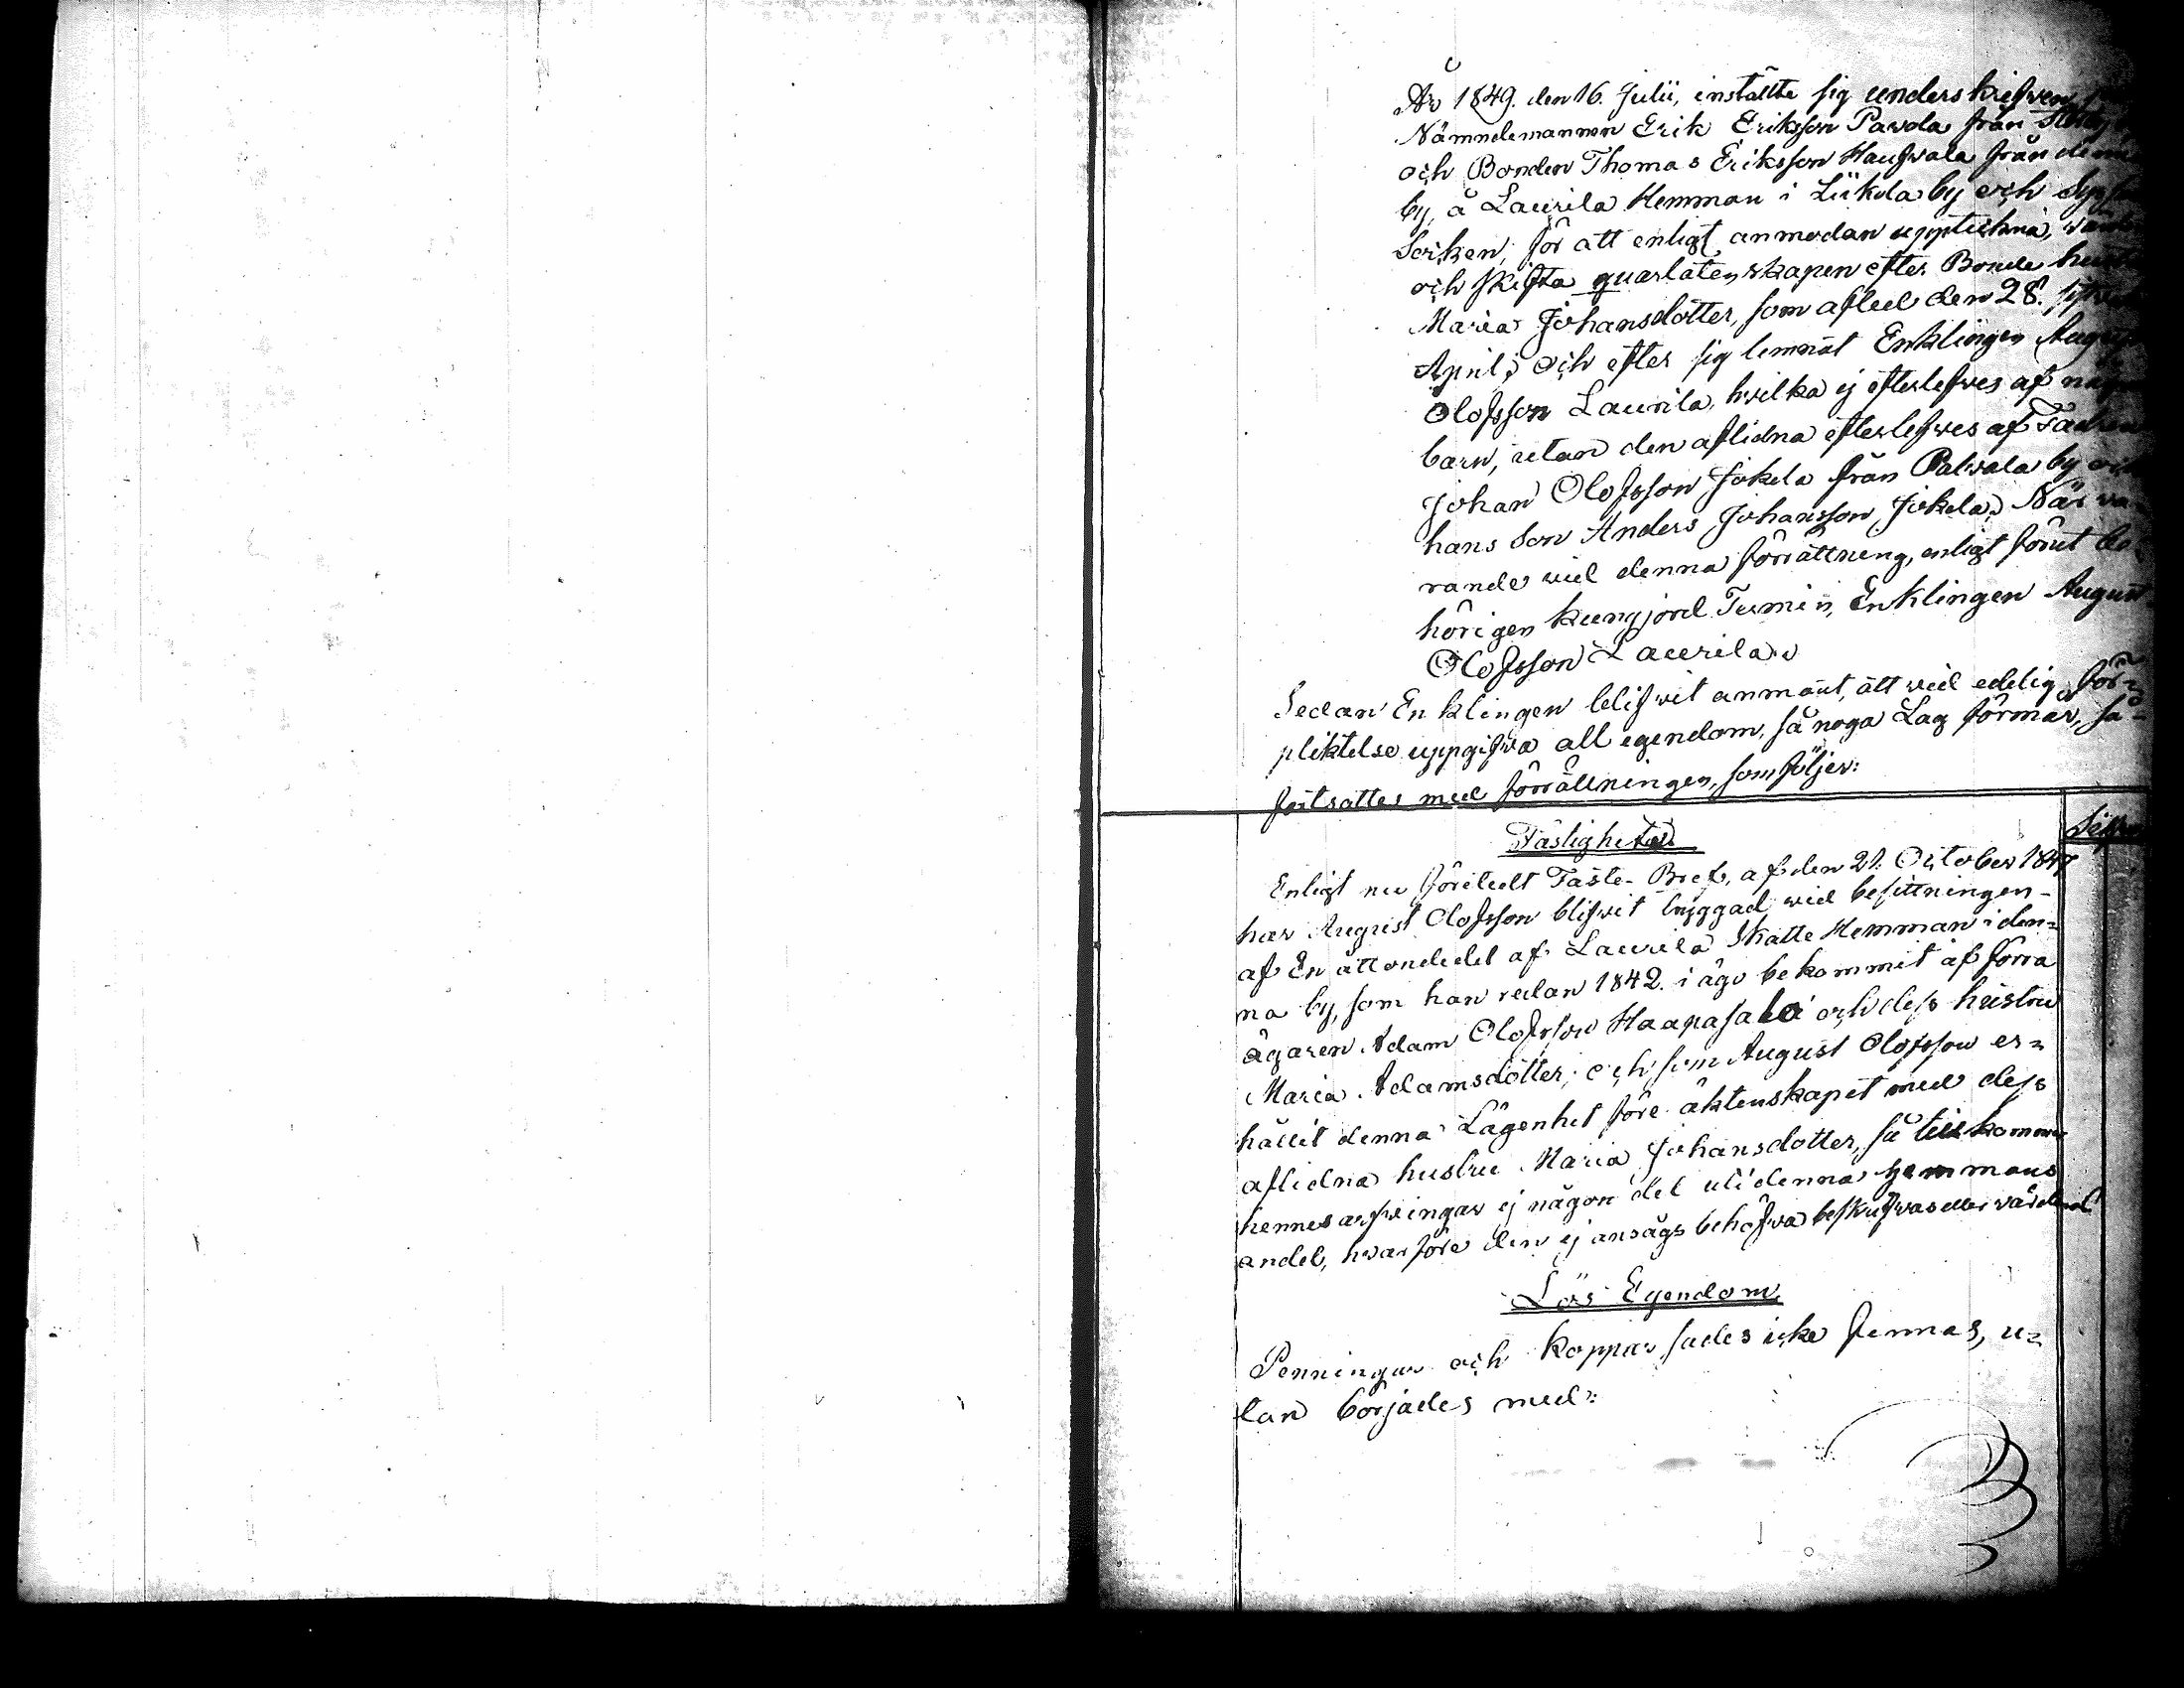 År 1849. den 16. Julii, inställte sig underskrifwen
Nämndemannen Erik Eriksson Pawola från
och Bonden Thomas Eriksson Haufwala från denna
by, å Laurila Hemman i Liikola by och
Socken, för att enligt anmodan uppteckna, wärde
och skifta quarlåtenskapen efter Bonde hustru
Maria Johansdotter, som afled den 28. sistl
April; och efter sig lemnat Enklingen August
Olofsson Laurila, hwilka ej efterlefwes af någre
barn, utan den aflidna efterlefwes af Fadren
Johan Olofsson Jokela från Palwala by och
hans Son Anders Johansson Jokela; Närwa-
rande wid denna förrättning, enligt förut be-
hörigen kungjord Termin, Enklingen August
Olofsson Laurila.
Sedan Enklingen blifwit anmant, att wid edelig för-
pliktelse uppgifwa all egendom, så noga Lag förmår, så-
fortsattes med förrättningen, som följer:
Fastigheter
Enligt nu företedt Faste-Bref, af den 21. October 1847
har August Olofsson blifwit tryggad wid besittningen-
af En åttondedel af Laurila Skatte Hemman i den-
na by, som han redan 1842. i ägo bekommit af förra
ägaren Adam Olofsson Haapasalo och dess hustru
Maria Adamsdotter; och som August Olofsson er-
hållit denna Lägenhet före äktenskapet med dess
aflidna hustru Maria Johansdotter, så tillkommer
hennes arfwingar ej någon del uti denna hemmans
andel, hwarföre den ej ansågs behöfwa beskrifwas eller wärderad
Lös Egendom,
Penningar och Koppar sades icke finnas, u-
tan börjades med: